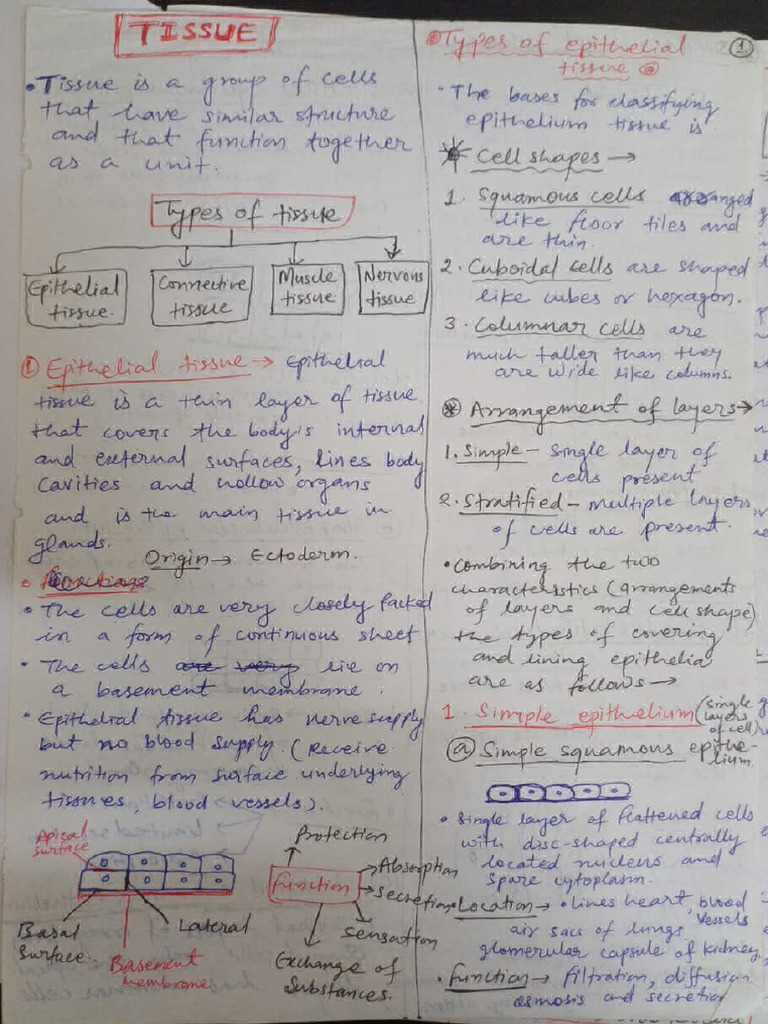 TISSUE
• Tissue is a group of cells
that have similar structure
and that function together
as a unit.
Types of tissue
Epithelial
tissue.
Connective
tissue
Muscle
tissue
Nervous
tissue
① Epithelial tissue → Epithelial
tissue is a thin layer of tissue
that covers the body's internal
and external surfaces, lines body
cavities and hollow organs
and is the main tissue in
glands.
Origin → Ectoderm.
• The cells are very closely packed
in a form of continuous sheet
• The cells are very lie on
a basement membrane.
• Epithelial tissue has nerve supply
but no blood supply. (Receive
nutrition from surface underlying
tissues, blood vessels).
Apical
surface
Basal
Surface
Lateral
Basement
membrane
Function
Protection
Absorption
Secretion
Sensation
Exchange of
Substances.
①
Types of epithelial
tissue
• The bases for classifying
epithelium tissue is
Cell shapes →
1. Squamous cells arranged
like floor tiles and
are thin.
2. Cuboidal cells are shaped
like cubes or hexagon.
3. Columnar cells are
much taller than they
are wide like columns.
Arrangement of layers →
1. Simple - Single layer of
cells present
2. Stratified - multiple layers
of cells are present.
• combining the two
characteristics (arrangements
of layers and cell shape)
the types of covering
and lining epithelia
are as follows →
1. Simple epithelium (single
layers
of cell)
ⓐ Simple squamous epithe-
lium.
• Single layer of flattened cells
with disc-shaped centrally
located nucleus and
spare cytoplasm.
• Location → • Lines heart, blood
vessels
air sacs of lungs
glomerular capsule of kidney
• function → filtration, diffusion
osmosis and secretion